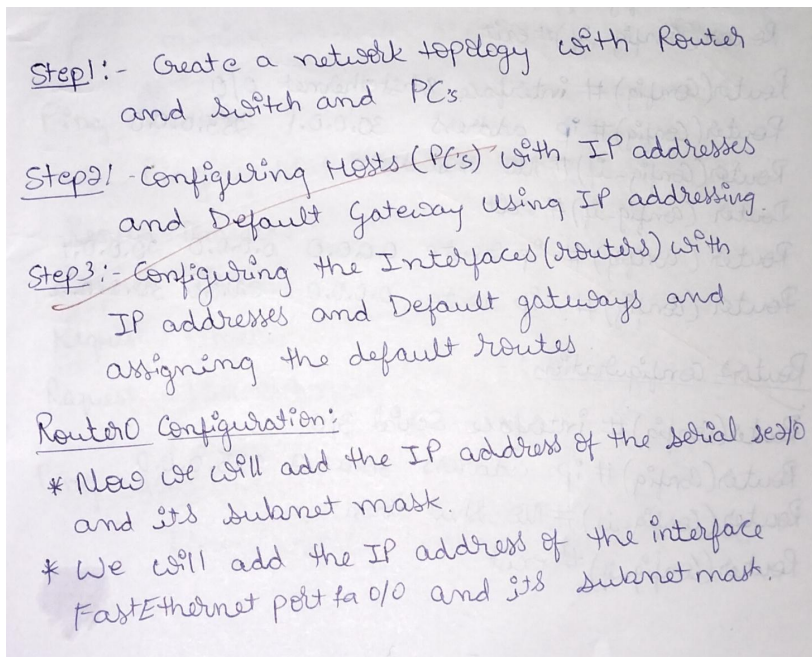 Step1:- Create a network topology with Router
and switch and PCs
Step2:- Configuring Hosts (PCs) with IP addresses
and Default Gateway using IP addressing.
Step3:- Configuring the Interfaces (routers) with
IP addresses and Default gateways and
assigning the default routes
Router0 Configuration:
* Now we will add the IP address of the serial se2/0
and its subnet mask
* We will add the IP address of the interface
FastEthernet port fa 0/0 and its subnet mask.